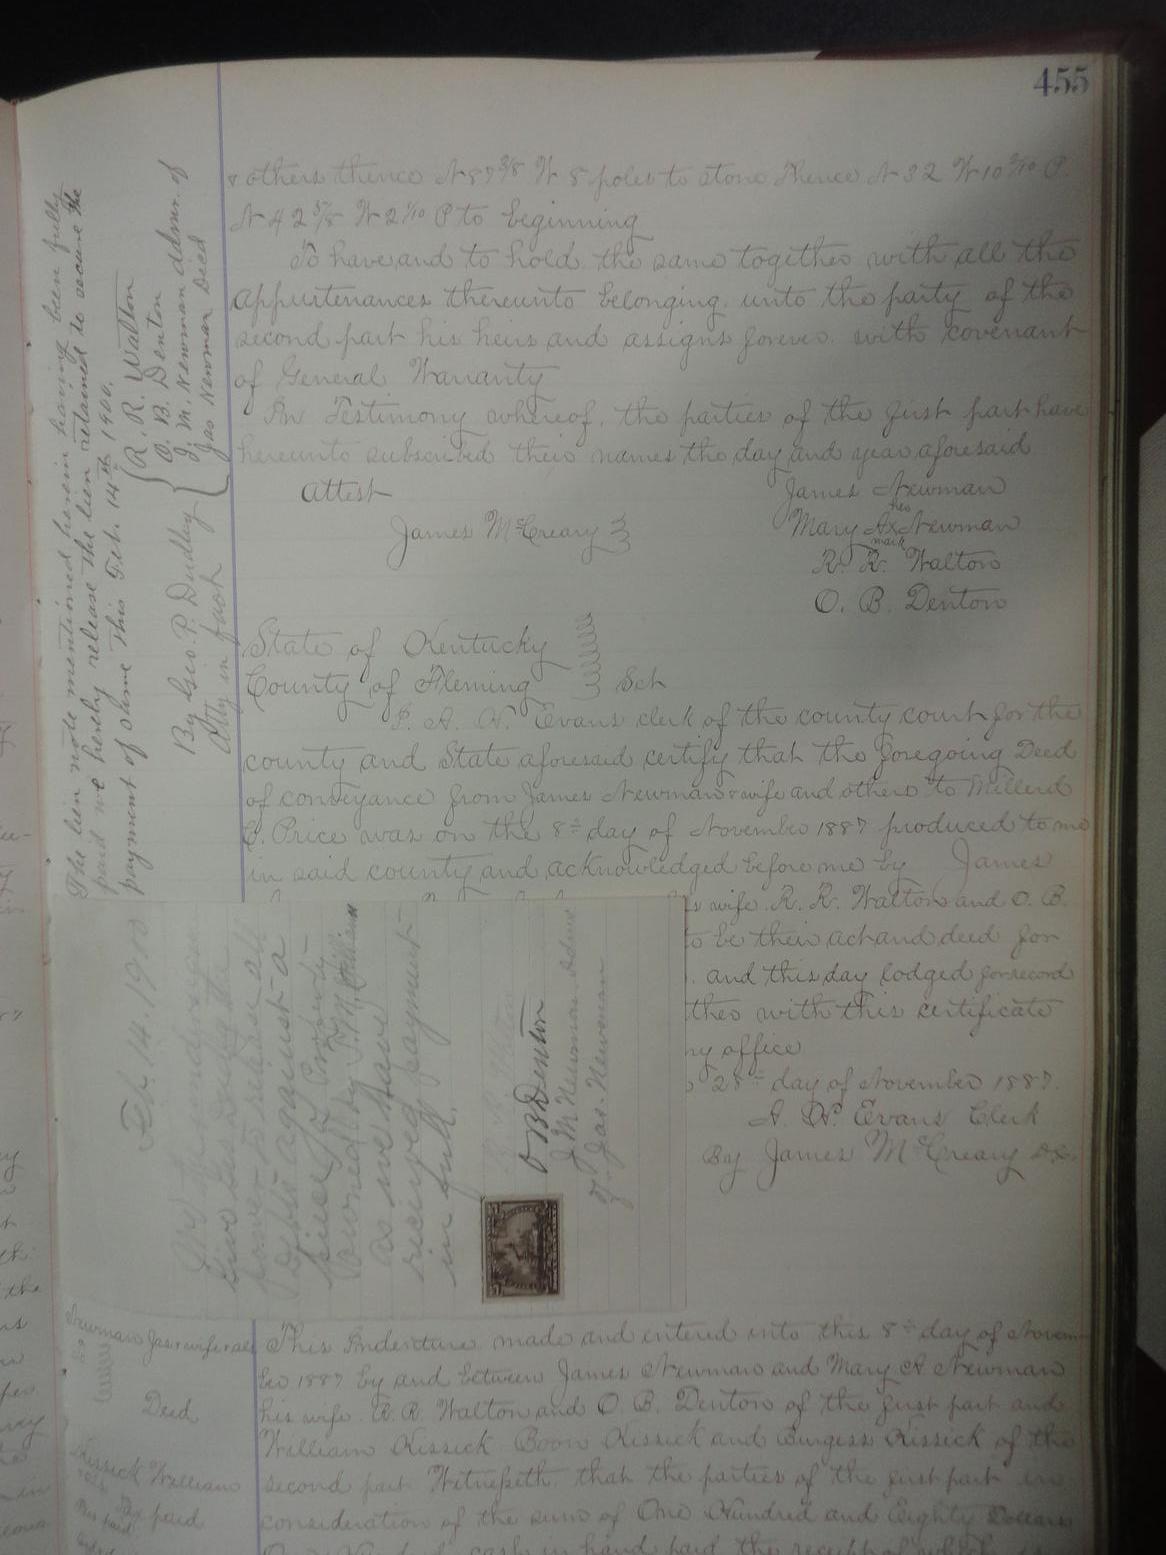 455
& others thence N 87 3/8 W 8 poles to stone Thence N 32 W 10 P.
N 42 5/8 W 2 1/10 P to beginning
To have and to hold the same together with all the
appurtenances thereunto belonging unto the party of the
second part his heirs and assigns forever with covenant
of General Warranty
In Testimony whereof, the parties of the first part have
hereunto subscribed their names the day and year aforesaid
Attest
James McCreary
James Newman
her
Mary A x Newman
mark
R. R. Walton
O. B. Denton
State of Kentucky
County of Fleming Sct
I. A. N. Evans clerk of the county court for the
county and State aforesaid certify that the foregoing Deed
of conveyance from James Newman & wife and others to Millerd
Price was on the 8th day of November 1887 produced to me
in said county and acknowledged before me by James
wife. R. R. Walton and O. B.
to be their act and deed for
and this day lodged for record
with this certificate
my office
28th day of November 1887.
A. N. Evans Clerk
By James McCreary D.C.
The lien note mentioned herein having been fully
paid we hereby release the lien retained to secure the
payment of same This Feb. 14th 1900.
R. R. Walton
O. B. Denton
J. M. Newman admr. of
Jas Newman Decd
By Geo P. Dudley
Atty in fact
Feb. 14. 1900
We the undersigned
give Geo Dudley the
power to release all
debt against a
piece of property
owned by
as we have
received payment
in full.
O B Denton
J M Newman Admr
of Jas. Newman
Newman Jas & wife & als
Deed
Kissick William
paid
This Indenture made and entered into this 8th day of Novem
ber 1887 by and between James Newman and Mary A Newman
his wife. R. R. Walton and O. B. Denton of the first part and
William Kissick Boon Kissick and Burgess Kissick of the
second part Witnesseth that the parties of the first part in
consideration of the sum of One Hundred and Eighty Dollars
cash in hand paid the receipt of which is